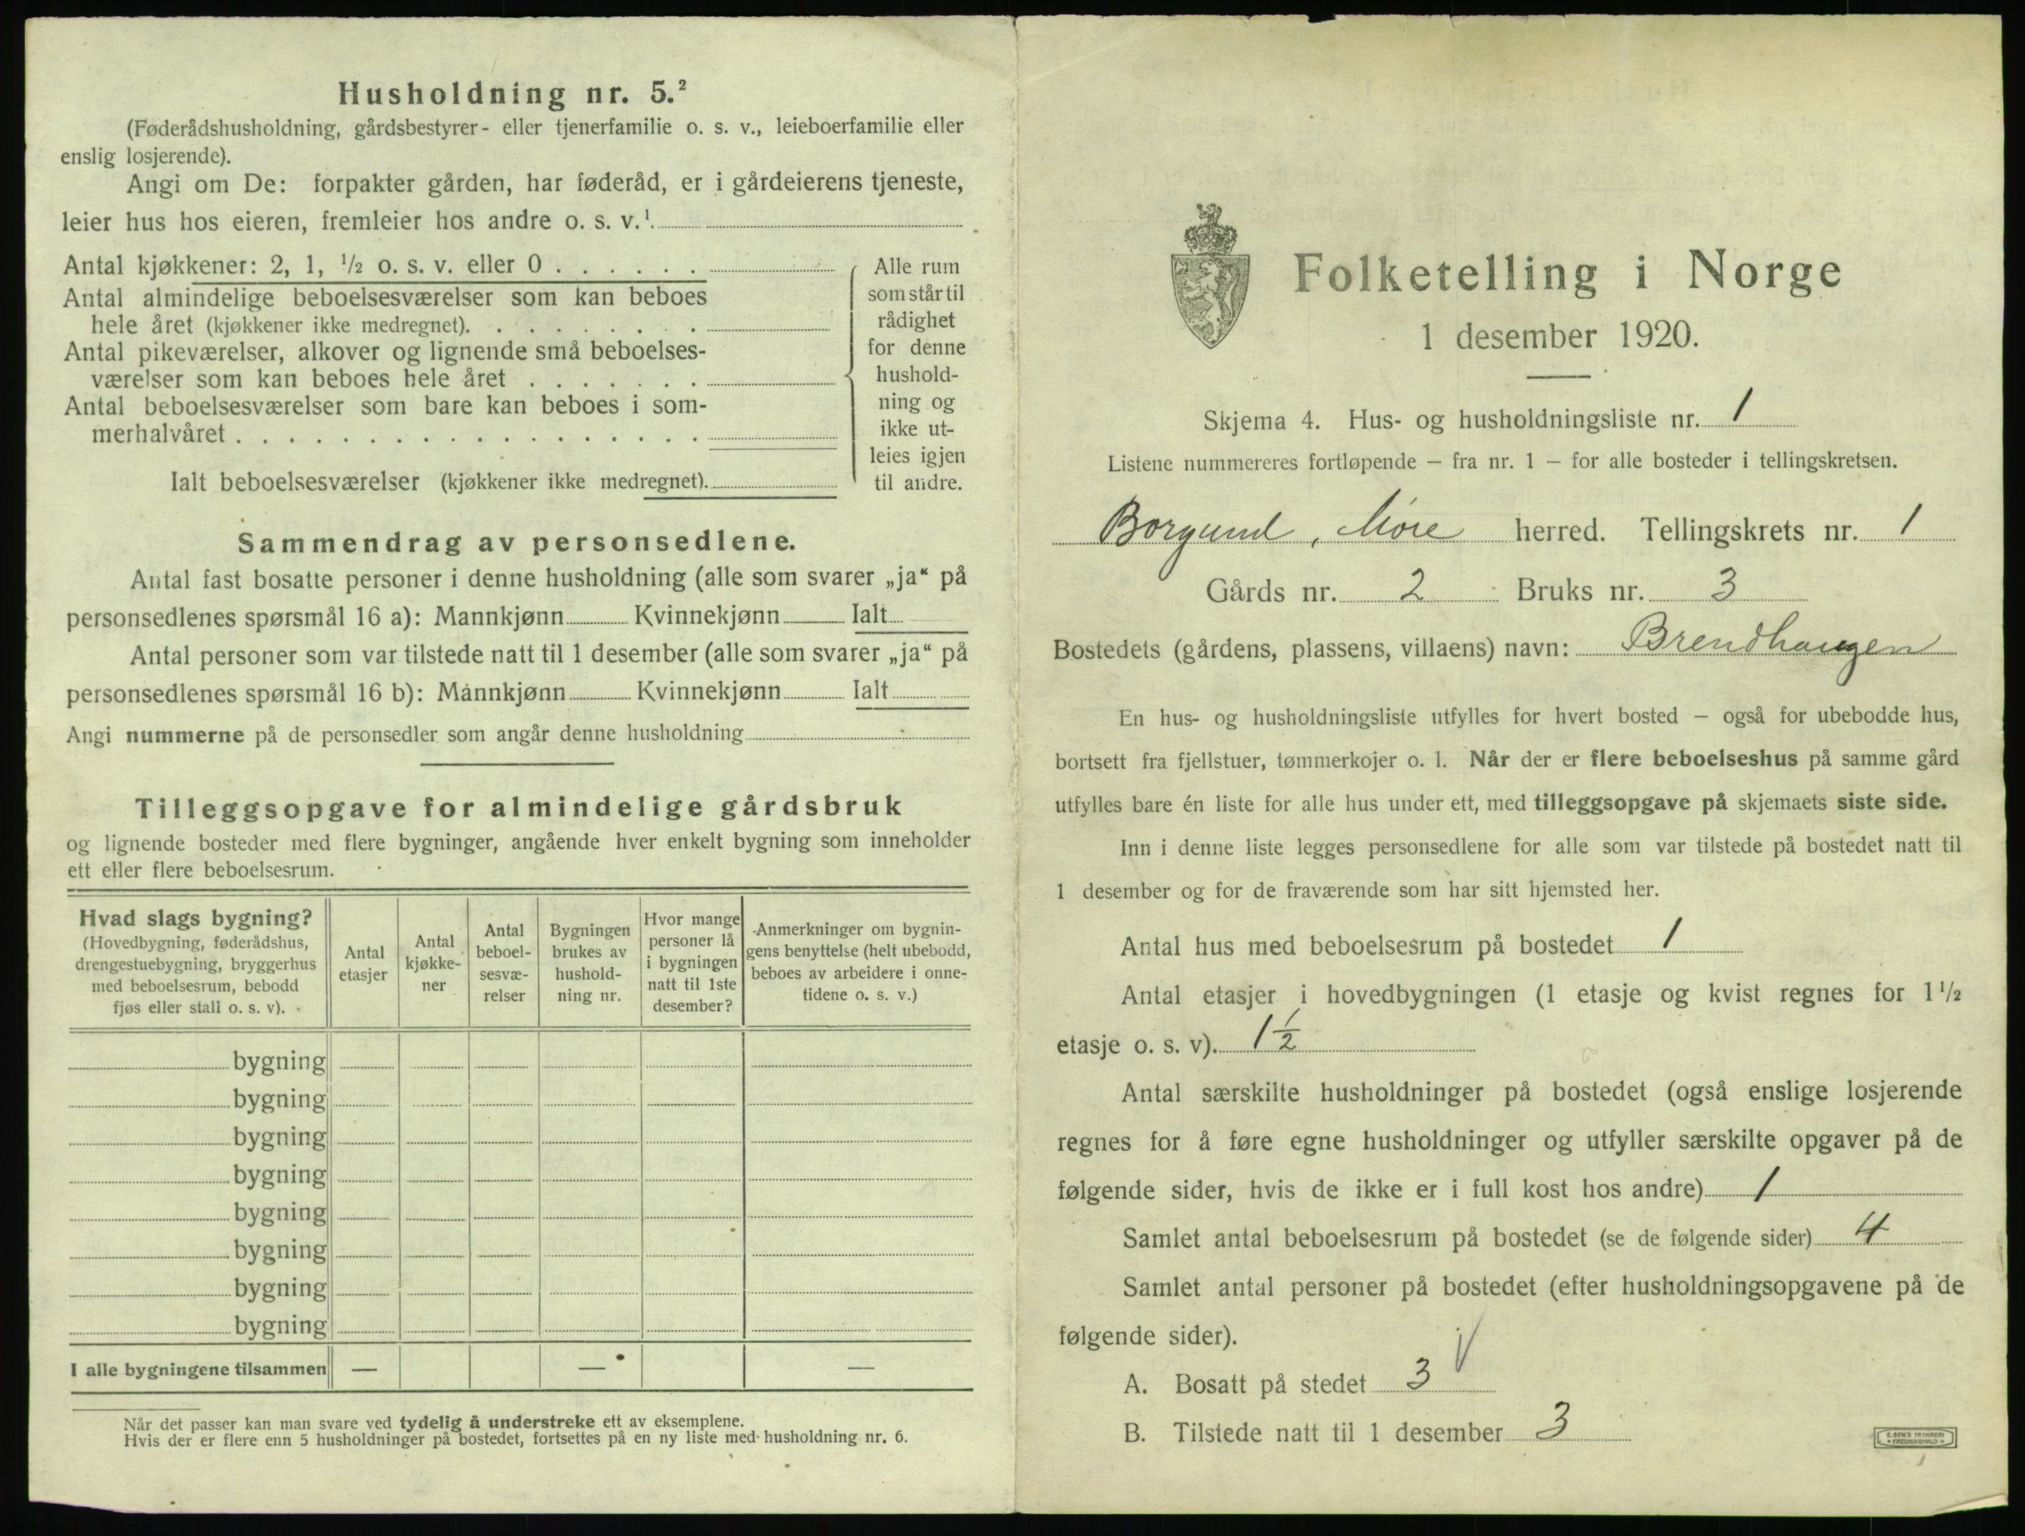 Husholdning nr. 5.²
(Føderådshusholdning, gårdsbestyrer- eller tjenerfamilie o. s. v., leieboerfamilie eller
enslig losjerende).
Angi om De: forpakter gården, har føderåd, er i gårdeierens tjeneste,
leier hus hos eieren, fremleier hos andre o. s. v.¹
Antal kjøkkener: 2, 1, ½ o. s. v. eller 0 . . . . . .
Antal almindelige beboelsesværelser som kan beboes
hele året (kjøkkener ikke medregnet). . . . . . . . .
Antal pikeværelser, alkover og lignende små beboelses-
værelser som kan beboes hele året . . . . . . .
Antal beboelsesværelser som bare kan beboes i som-
merhalvåret . . . . . . . . . . . . . . . . . .
Ialt beboelsesværelser (kjøkkener ikke medregnet).
Alle rum
som står til
rådighet
for denne
hushold-
ning og
ikke ut-
leies igjen
til andre.
Sammendrag av personsedlene.
Antal fast bosatte personer i denne husholdning (alle som svarer „ja“ på
personsedlenes spørsmål 16 a): Mannkjønn Kvinnekjønn Ialt
Antal personer som var tilstede natt til 1 desember (alle som svarer „ja“ på
personsedlenes spørsmål 16 b): Mannkjønn Kvinnekjønn Ialt
Angi nummerne på de personsedler som angår denne husholdning
Tilleggsopgave for almindelige gårdsbruk
og lignende bosteder med flere bygninger, angående hver enkelt bygning som inneholder
ett eller flere beboelsesrum.
Hvad slags bygning?
(Hovedbygning, føderådshus,
drengestuebygning, bryggerhus
med beboelsesrum, bebodd
fjøs eller stall o. s. v).
Antal
etasjer
Antal
kjøkke-
ner
Antal
beboel-
sesvæ-
relser
Bygningen
brukes av
hushold-
ning nr.
Hvor mange
personer lå
i bygningen
natt til 1ste
desember?
Anmerkninger om bygnin-
gens benyttelse (helt ubebodd,
beboes av arbeidere i onne-
tidene o. s. v.)
bygning
bygning
bygning
bygning
bygning
bygning
bygning
bygning
I alle bygningene tilsammen — — —
Når det passer kan man svare ved tydelig å understreke ett av eksemplene.
Hvis der er flere enn 5 husholdninger på bostedet, fortsettes på en ny liste med husholdning nr. 6.
Folketelling i Norge
1 desember 1920.
Skjema 4. Hus- og husholdningsliste nr. 1
Listene nummereres fortløpende – fra nr. 1 – for alle bosteder i tellingskretsen.
Borgund, Møre herred. Tellingskrets nr. 1
Gårds nr. 2 Bruks nr. 3
Bostedets (gårdens, plassens, villaens) navn: Brendhaugen
En hus- og husholdningsliste utfylles for hvert bosted – også for ubebodde hus,
bortsett fra fjellstuer, tømmerkojer o. l. Når der er flere beboelseshus på samme gård
utfylles bare én liste for alle hus under ett, med tilleggsopgave på skjemaets siste side.
Inn i denne liste legges personsedlene for alle som var tilstede på bostedet natt til
1 desember og for de fraværende som har sitt hjemsted her.
Antal hus med beboelsesrum på bostedet 1
Antal etasjer i hovedbygningen (1 etasje og kvist regnes for 1 ½
etasje o. s. v). 1 ½
Antal særskilte husholdninger på bostedet (også enslige losjerende
regnes for å føre egne husholdninger og utfyller særskilte opgaver på de
følgende sider, hvis de ikke er i full kost hos andre) 1
Samlet antal beboelsesrum på bostedet (se de følgende sider) 4
Samlet antal personer på bostedet (efter husholdningsopgavene på de
følgende sider).
A. Bosatt på stedet 3
B. Tilstede natt til 1 desember 3